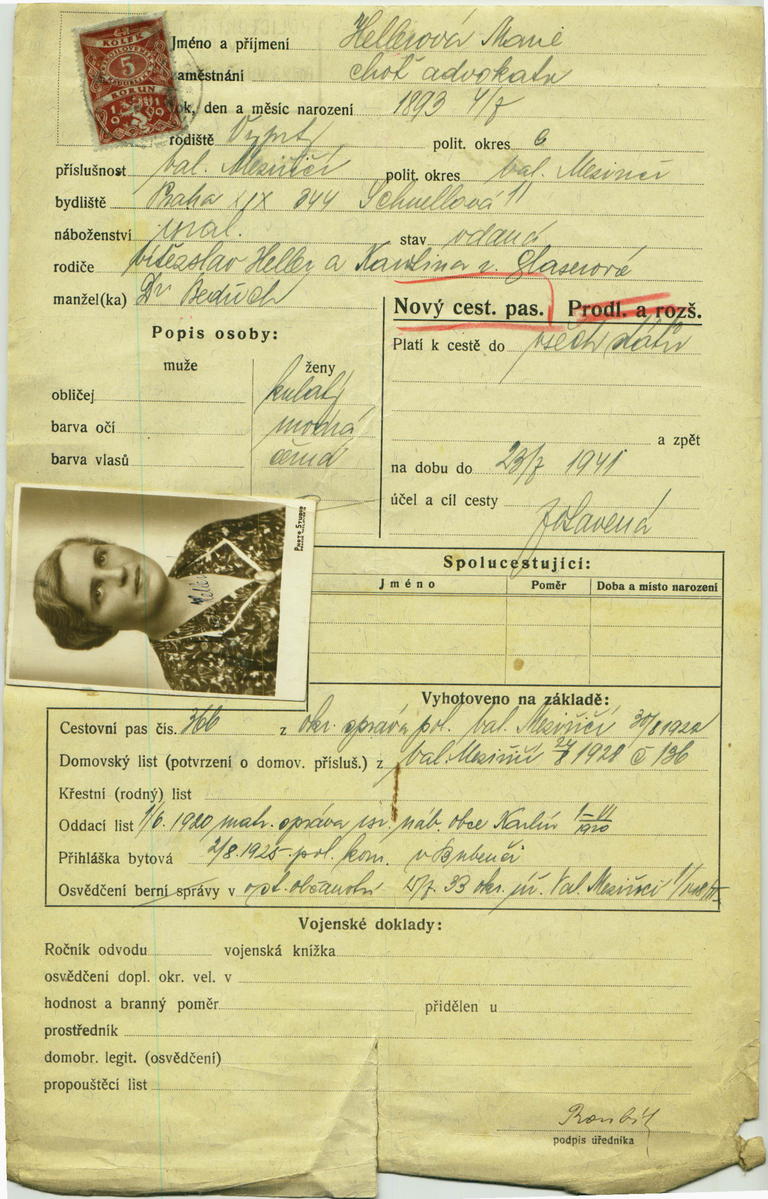 KOLEK
5
KORUN
Jméno a příjmení Hellerová Marie
zaměstnání choť advokáta
rok, den a měsíc narození 1893 4/7
rodiště polit. okres
příslušnost Val. Meziříčí polit. okres Val. Meziříčí
bydliště Praha XIX 344 Schnellová 11
náboženství stav vdaná
rodiče Vítězslav Heller a Karolina r. Glaserová
manžel(ka) Dr Bedřich
Nový cest. pas. Prodl. a rozš.
Popis osoby:
Platí k cestě do všech států
muže ženy
obličej kulatý
barva očí modrá
a zpět
barva vlasů černá
na dobu do 23/7 1941
účel a cíl cesty
Photo Studio
Spolucestující:
Jméno Poměr Doba a místo narození
Vyhotoveno na základě:
Cestovní pas čís. 366 z okr. správa pol. Val. Meziříčí 30/8 1922
Domovský list (potvrzení o domov. přísluš.) z Val. Meziříčí 1928 č 136
Křestní (rodný) list
Oddací list 1/6. 1920 matr. správa isr. náb. obce Karlín
Přihláška bytová 2/8. 1925 pol. kom. v Bubenči
Osvědčení berní správy v 33 okr. úř. Val. Meziříčí
Vojenské doklady:
Ročník odvodu vojenská knížka
osvědčení dopl. okr. vel. v
hodnost a branný poměr přidělen u
prostředník
domobr. legit. (osvědčení)
propouštěcí list
podpis úředníka